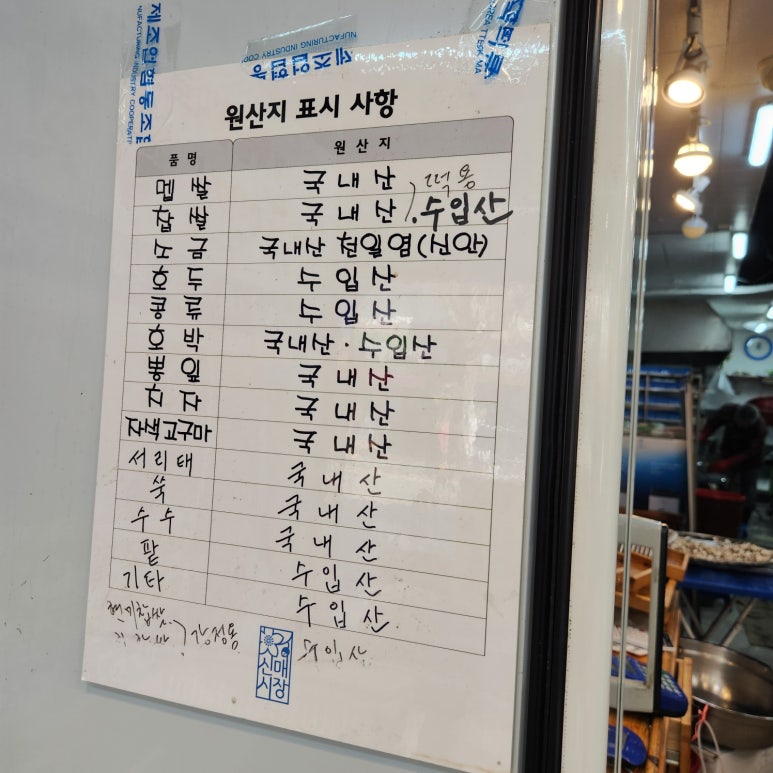 제조업협동조합
NUFACTURING INDUSTRY COOPERATI
NUFACTURING INDUSTRY COOP
원산지 표시 사항
품명 원산지
멥쌀 국내산 떡용
찹쌀 국내산 . 수입산
소금 국내산 천일염(신안)
호두 수입산
콩류 수입산
호박 국내산 · 수입산
뽕잎 국내산
치자 국내산
자색고구마 국내산
서리태 국내산
쑥 국내산
수수 국내산
팥 수입산
기타 수입산
현미찹쌀
강정용 수입산
신매
시장